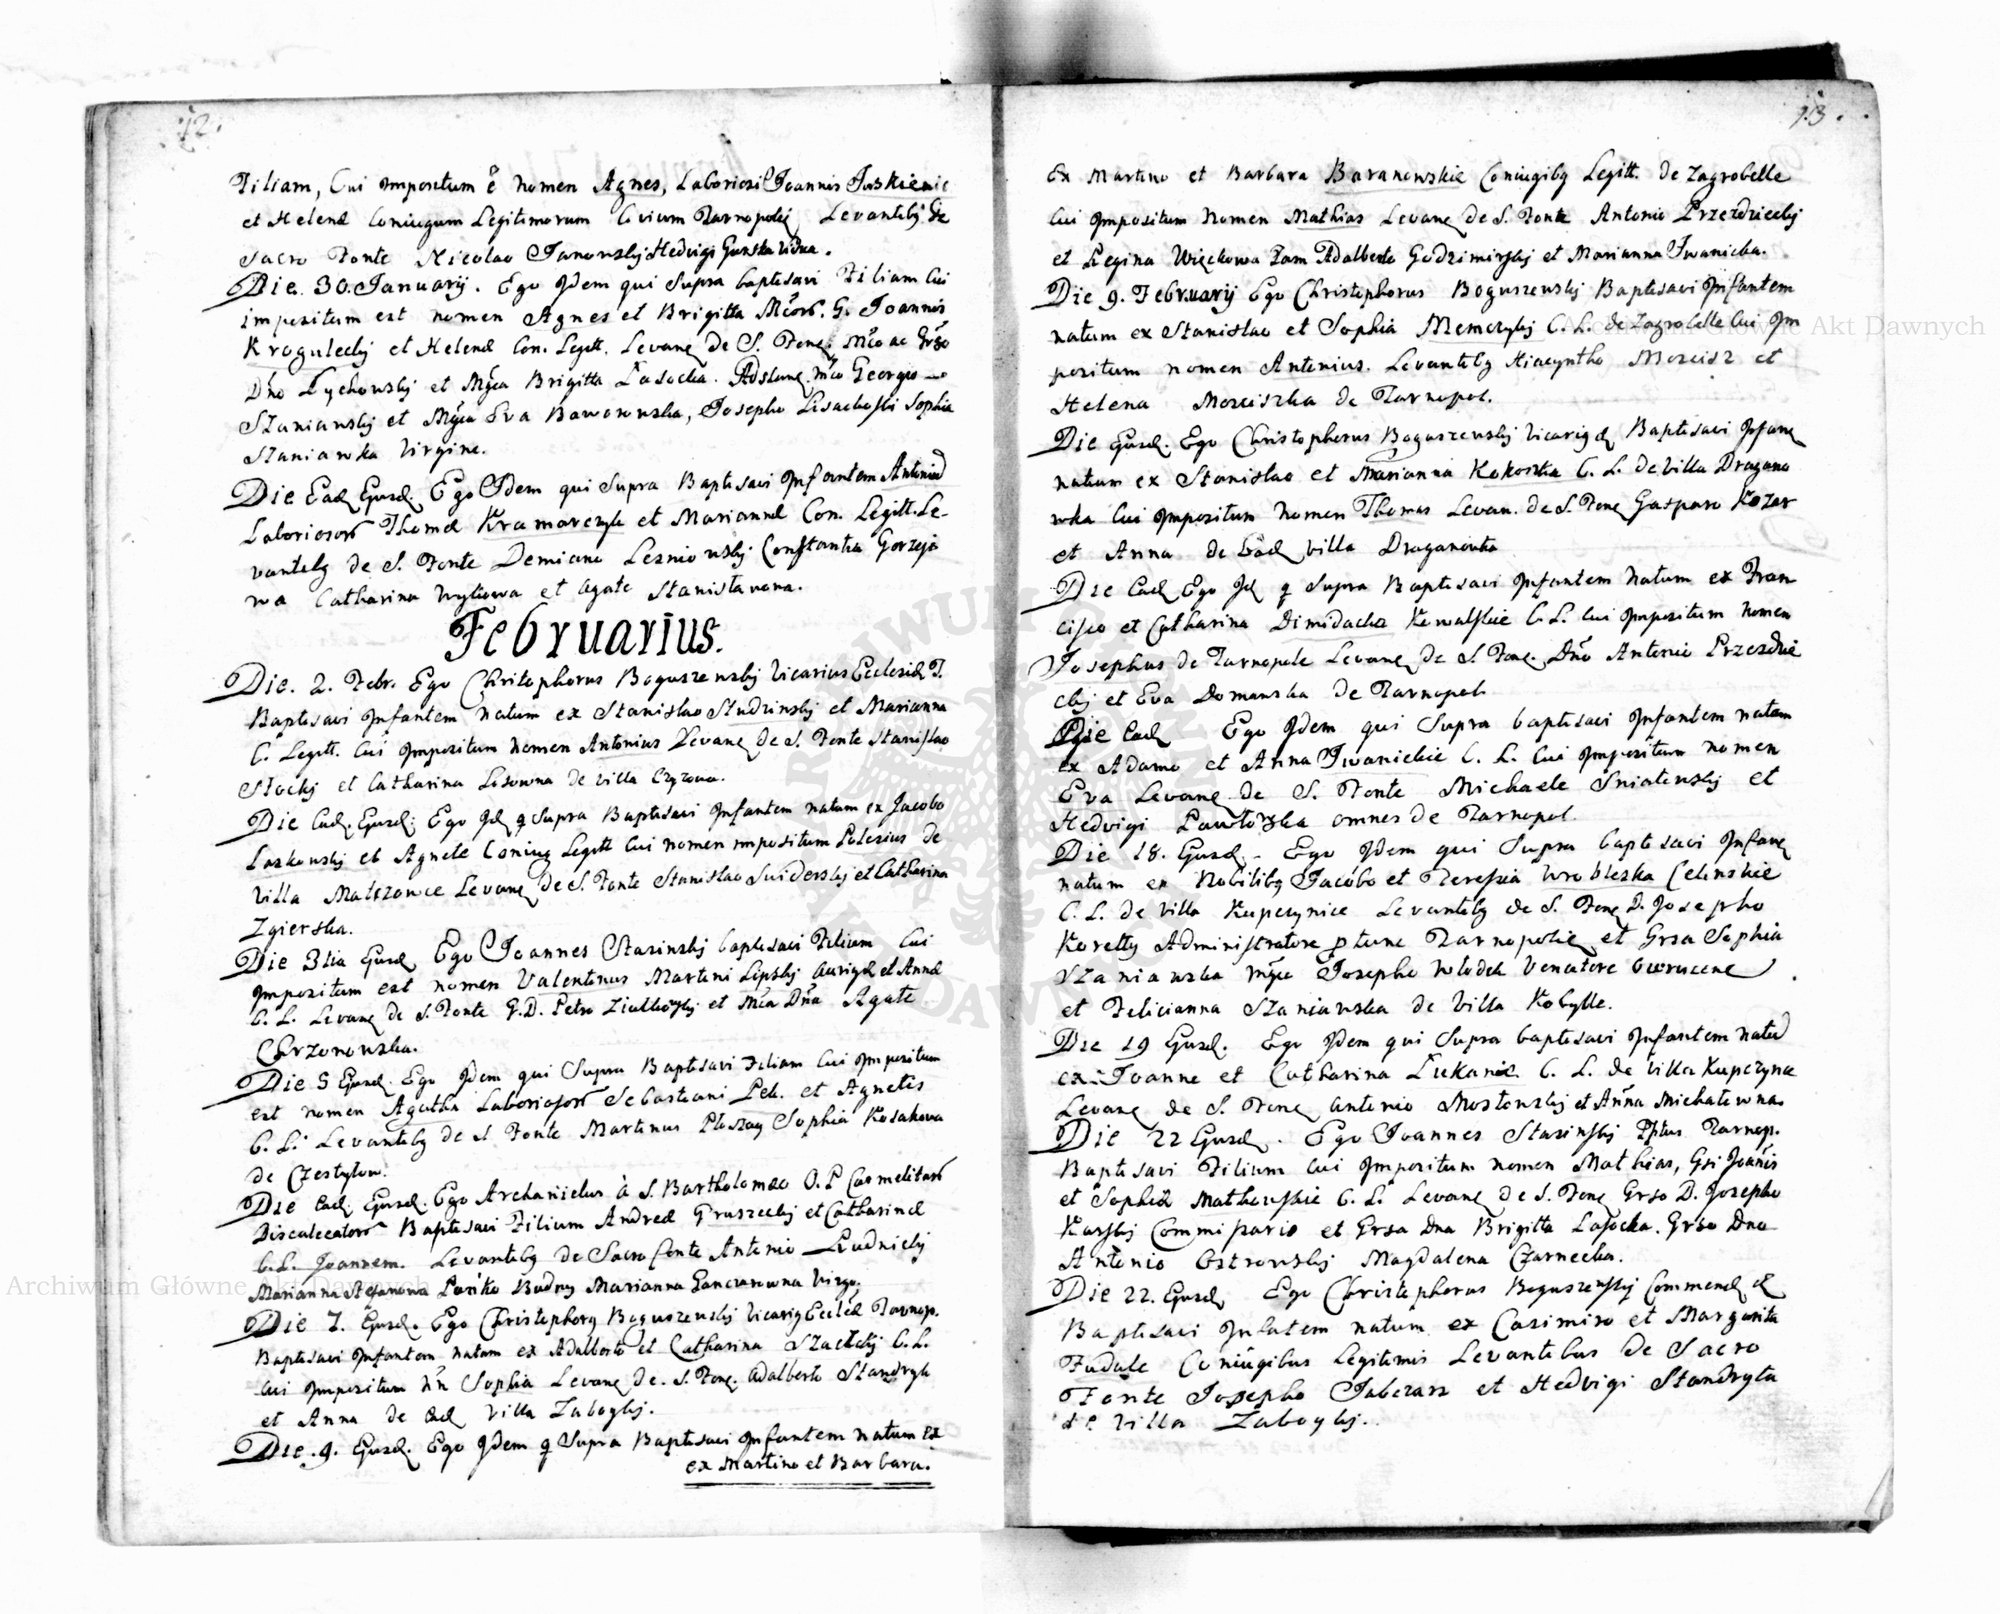 12.
Filiam, Cui impositum ẽ nomen Agnes, Laboriosi Joannis
et Helenæ Coniugum Legitimorum Civium Tarnopolij Levantibq de
sacro Fonte Nicolao Janowskij Hedvigi Gurska Vidua.
Die 30. Januarij. Ego Idem qui Supra baptisavi Filiam Cui
impositum est nomen Agnes et Brigitta G. Joannis
Kroguleckij et Helenæ Con. Legitt. Levanq de S. Fonq
Dño Lychowskij et Mgca Brigitta Lasocka. Georgio
Staniawskij et Mgca Eva Baworowska, Josepho Sophia
Staniawska Virgine.
Die Ead Ejusd. Ego Idem qui Supra Baptisavi Infantem
Laboriosor Thomæ Kramarczyk et Mariannæ Con. Legitt. Le-
vantibq de S. Fonte Demiano Lesniowskij Constantia Gorzejo
wa Catharina et Agate Stanislavona.
Februarius.
Die. 2. Febr. Ego Christophorus Boguszewskij Vicarius Ecclesiæ T.
Baptisavi Infantem natum ex Stanislao Studzinskij et Marianna
C. Legitt. Cui Impositum Nomen Antonius Levanq de S. Fonte Stanislao
Stockij et Catharina Lisowna de Villa
Die Ead. Ejusd. Ego Id q Supra Baptisavi Infantem natam ex Jacobo
Laskowskij et Agnete Coniug Legitt Cui nomen impositum de
Villa Levanq de S. Fonte Stanislao Swiderskij et Catharina
Zgierska.
Die 3tia Ejusd Ego Joannes Stasinskij baptisavi Filium Cui
Impositum est nomen Valentinus Martini Lipskij Aurigæ et Annæ
C. L. Levanq de S. Fonte G.D. Petro et Mca Dña Agate
Chrzonowska.
Die 5 Ejusd. Ego Idem qui Supra Baptisavi Filiam Cui Impositum
est nomen Agatha Laboriosor Sebastiani et Agnetis
C. L. Levantibq de S Fonte Martinus Sophia Kosakowa
de Czestylow.
Die Ead. Ejusd. Ego Archanielus à S. Bartholomæo O. P Carmelitar
Discalceator Baptisavi Filium Andreæ Gruszeckij et Catharinæ
C. L. Joannem. Levantibq de Sacro Fonte Antonio Rudnickij
Marianna Stefanowa Panko Budny Marianna Virgo.
Die 7. Ejusd. Ego Christophorq Boguszewskij Vicariq Eccles Tarnop.
Baptisavi Infantem natam ex Adalberto et Catharina C. L.
Cui Impositum Nn Sophia Levanq de. S. Fonq. Adalberto Standryk
et Anna de ead Villa Zaboykij.
Die .9. Ejusd. Ego Idem q Supra Baptisavi Infantem natum ex
ex Martino et Barbara.
13.
Ex Martino et Barbara Baranowskie Coniugibq Legitt. de Zagrobelle
Cui Impositum Nomen Mathias Levanq de S. Fonte Antonio Przezdzieckij
et Regina Więckowa Adalberto Godzimirskij et Marianna Iwanicka.
Die 9. Februarij Ego Christophorus Boguszewskij Baptisavi Infantem
natum ex Stanislao et Sophia C. L. de Zagrobelle Cui Im
positum nomen Antonius. Levantibq Hiacyntho et
Helena de Tarnopol.
Die Ejusd. Ego Christophorus Boguszewskij Baptisavi Infanq
natum ex Stanislao et Marianna Kokoszka C. L. de Villa Dragano
wka Cui Impositum Nomen Thomas Levan. de S. Fonq Gasparo Kozar
et Anna de Ead villa Draganowka
Die Ead Ego Id q Supra Baptisavi Infantem Natum ex Fran
cisco et Catharina Dimidacha Kowalskie C. L. Cui Impositum Nomen
Josephus de Tarnopole Levanq de S Fonq. Dño Antonio Przezdzie
ckij et Eva Domanska de Tarnopol
Die Ead Ego Idem qui Supra baptisavi Infantem natam
ex Adamo et Anna Iwanickie C. L. Cui Impositum nomen
Eva Levanq de S. Fonte Michaele Sniatenskij et
Hedvigi Pawłowska omnes de Tarnopol.
Die 18. Ejusd. Ego Idem qui Supra baptisavi Infanq
natum ex Nobilibq Jacobo et Teressia Wrobleska Celinskie
C. L. de Villa Kupczynice Levantibq de S. Fonq D. Josepho
Koretty Administratore Tarnopolie et Grsa Sophia
Staniawska Mgco Josepho Venatore
et Felicianna Staniawska de Villa Kobylle.
Die 19 Ejusd. Ego Idem qui Supra baptisavi Infantem
ex Joanne et Catharina C. L. de Villa Kupczyne
Levanq de S. Fonq Antonio Mostowskij et Anna Michałowna
Die 22 Ejusd. Ego Joannes Stasinskij Tarnop.
Baptisavi Filium Cui Impositum nomen Mathias, Gsi Joanis
et Sophiæ C. L. Levanq de S. Fonq Grso D. Josepho
Karskij Commissario et Grsa Dna Brigitta Lasocka. Grso Dno
Antonio Ostrowskij Magdalena Czarnecka.
Die 22. Ejusd Ego Christophorus Boguszewskij
Baptisavi Infatem natum ex Casimiro et Margarita
Coniugibus Legitimis Levantibus de Sacro
Fonte Josepho et Hedvigi Standryka
de Villa Zaboykij.
Archiwum Główne Akt Dawnych
Archiwum Główne Akt Dawnych
ARCHIWUM GŁÓWNE AKT DAWNYCH